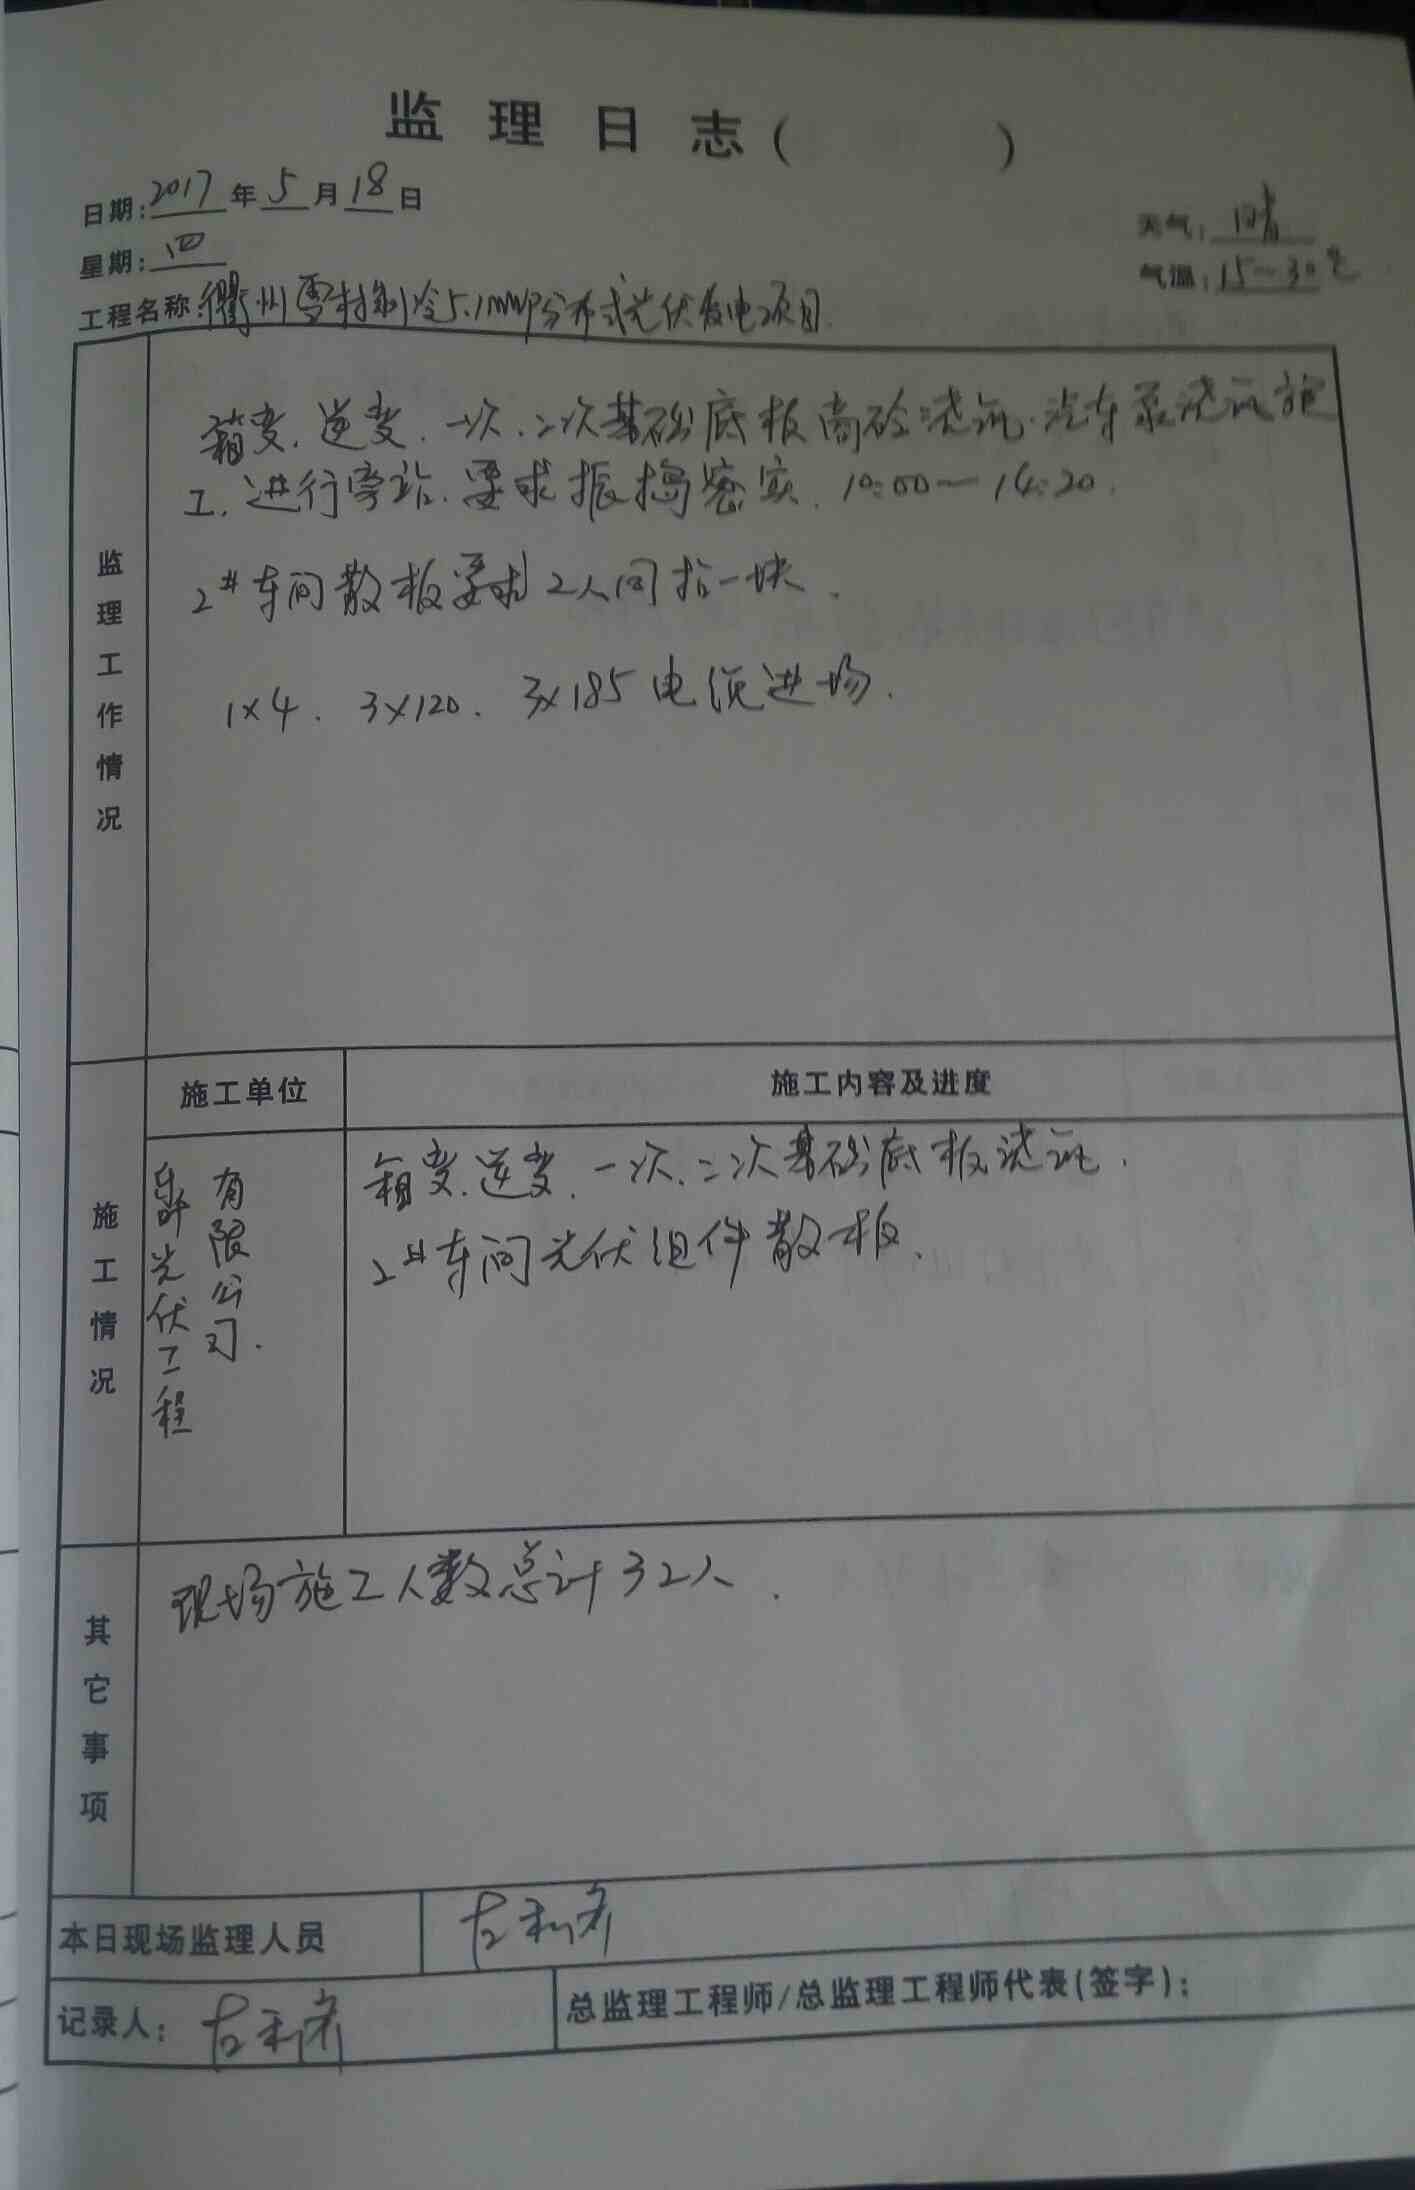 监理日志( )
日期:2017年5月18日
天气:晴
星期:四
气温:15~30℃
工程名称:衢州雪村制冷5.1MWP分布式光伏发电项目.
监理工作情况
箱变.逆变.一次.二次基础底板商砼浇筑.汽车泵浇筑施
工.进行旁站.要求振捣密实.10:00~14:20.
2#车间散板要求2人同抬一块.
1×4. 3×120. 3×185电缆进场.
施工情况
施工单位
施工内容及进度
光伏工程
有限公司.
箱变.逆变.一次.二次基础底板浇筑.
2#车间光伏组件散板.
其它事项
现场施工人数总计32人.
本日现场监理人员
记录人:
总监理工程师/总监理工程师代表(签字):